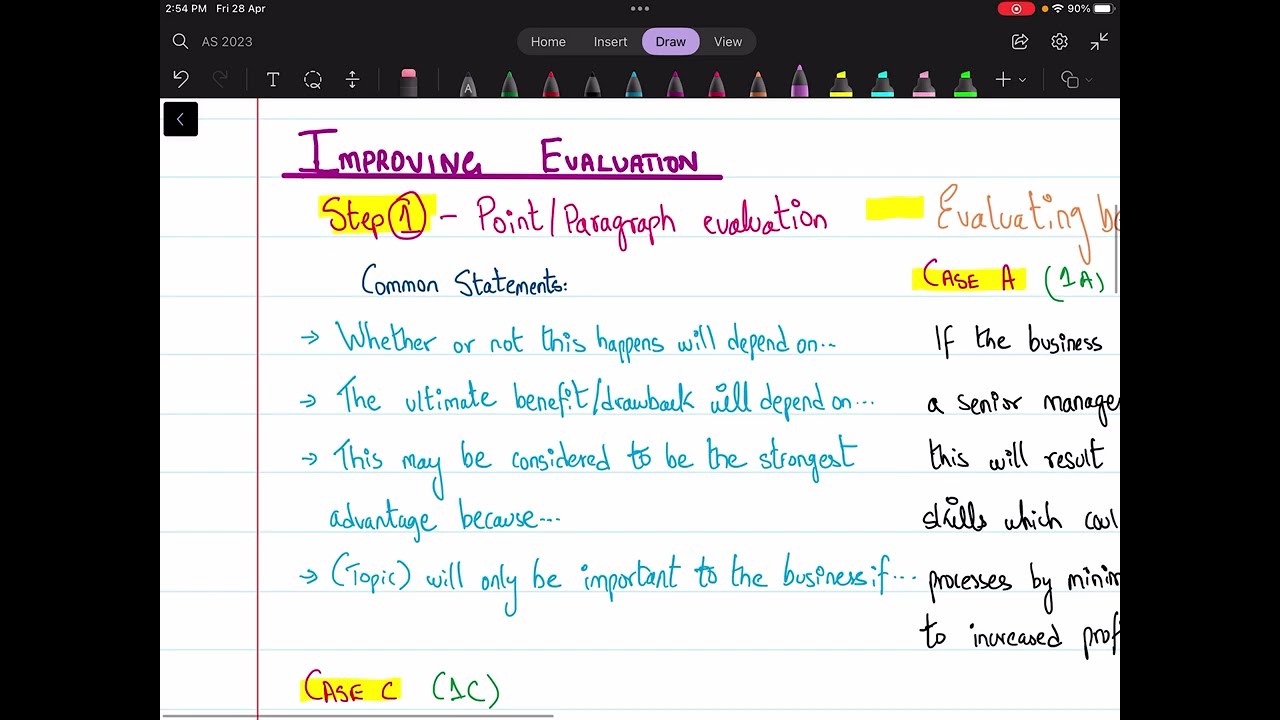 2:54 PM Fri 28 Apr
90%
AS 2023
Home Insert Draw View
T
A
IMPROVING EVALUATION
Step 1 - Point/Paragraph evaluation
Common Statements:
→ Whether or not this happens will depend on...
→ The ultimate benefit/drawback will depend on...
→ This may be considered to be the strongest
advantage because...
→ (Topic) will only be important to the business if...
CASE C (1C)
Evaluating
CASE A (1A)
If the business
a senior manage
this will result
skills which coul
processes by minim
to increased prof